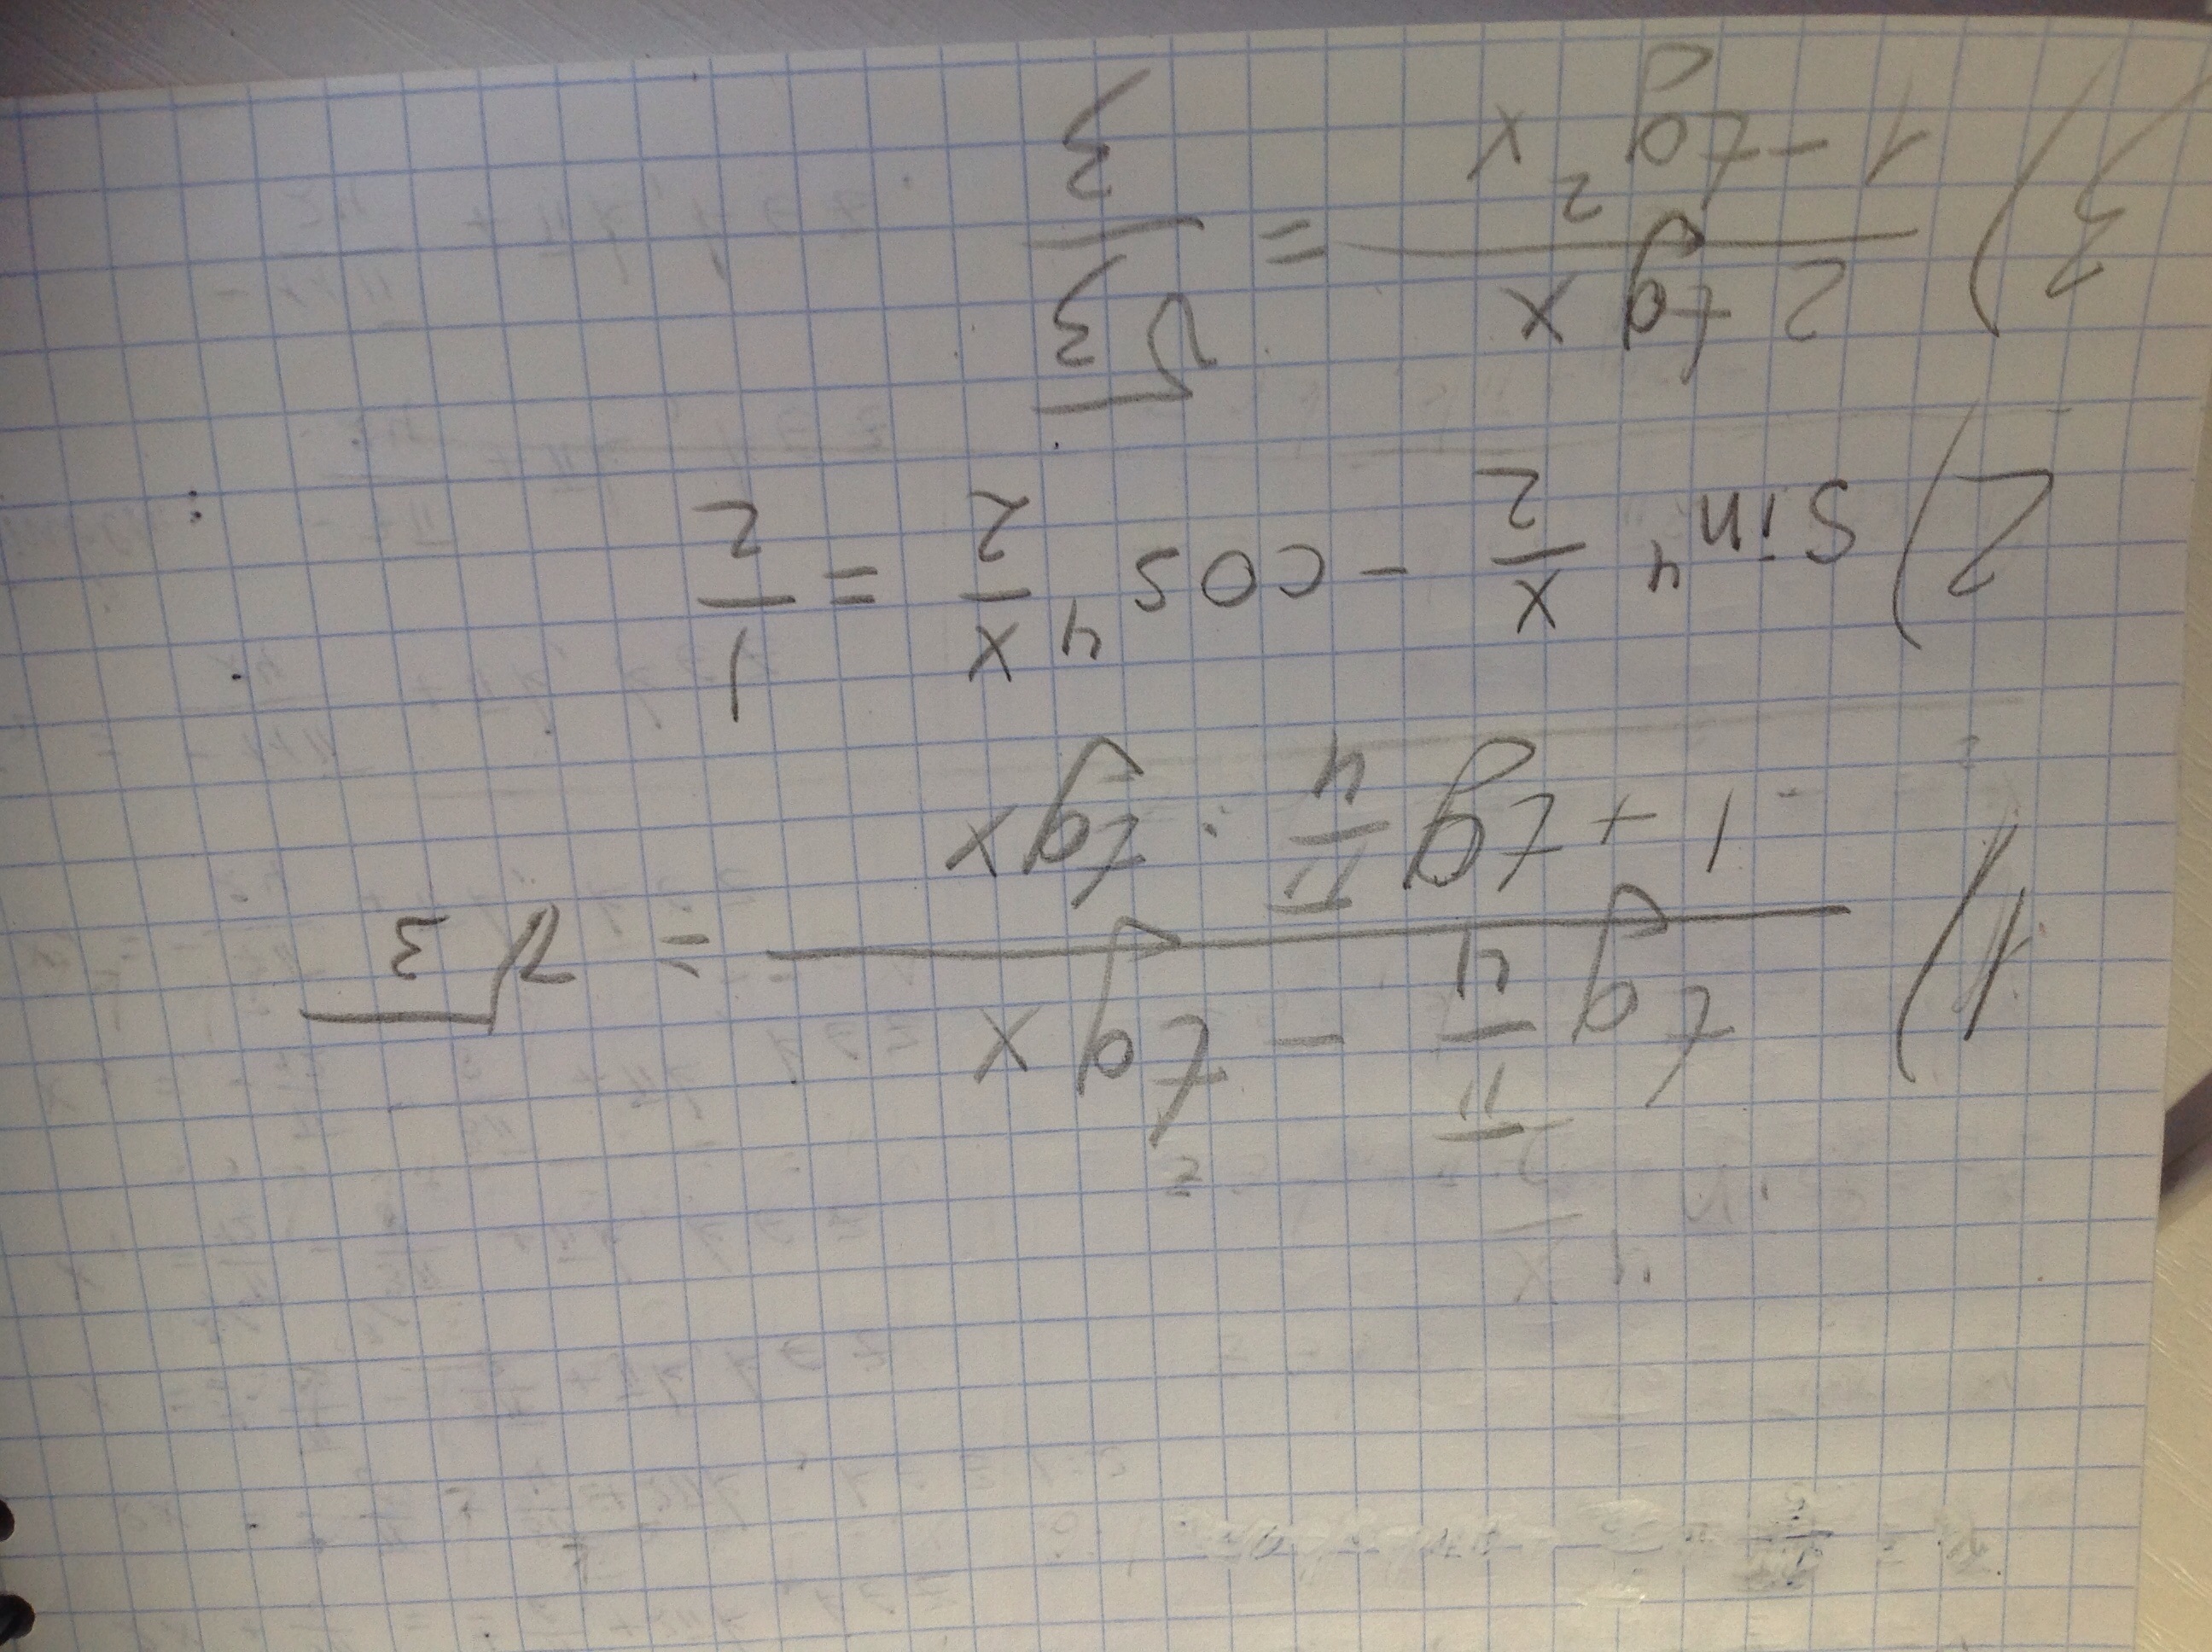 1) (tg π/4 - tg x) / (1 + tg π/4 · tg x) = √3
2) sin⁴ x/2 - cos⁴ x/2 = 1/2
3) 2 tg x / (1 - tg² x) = √3 / 3